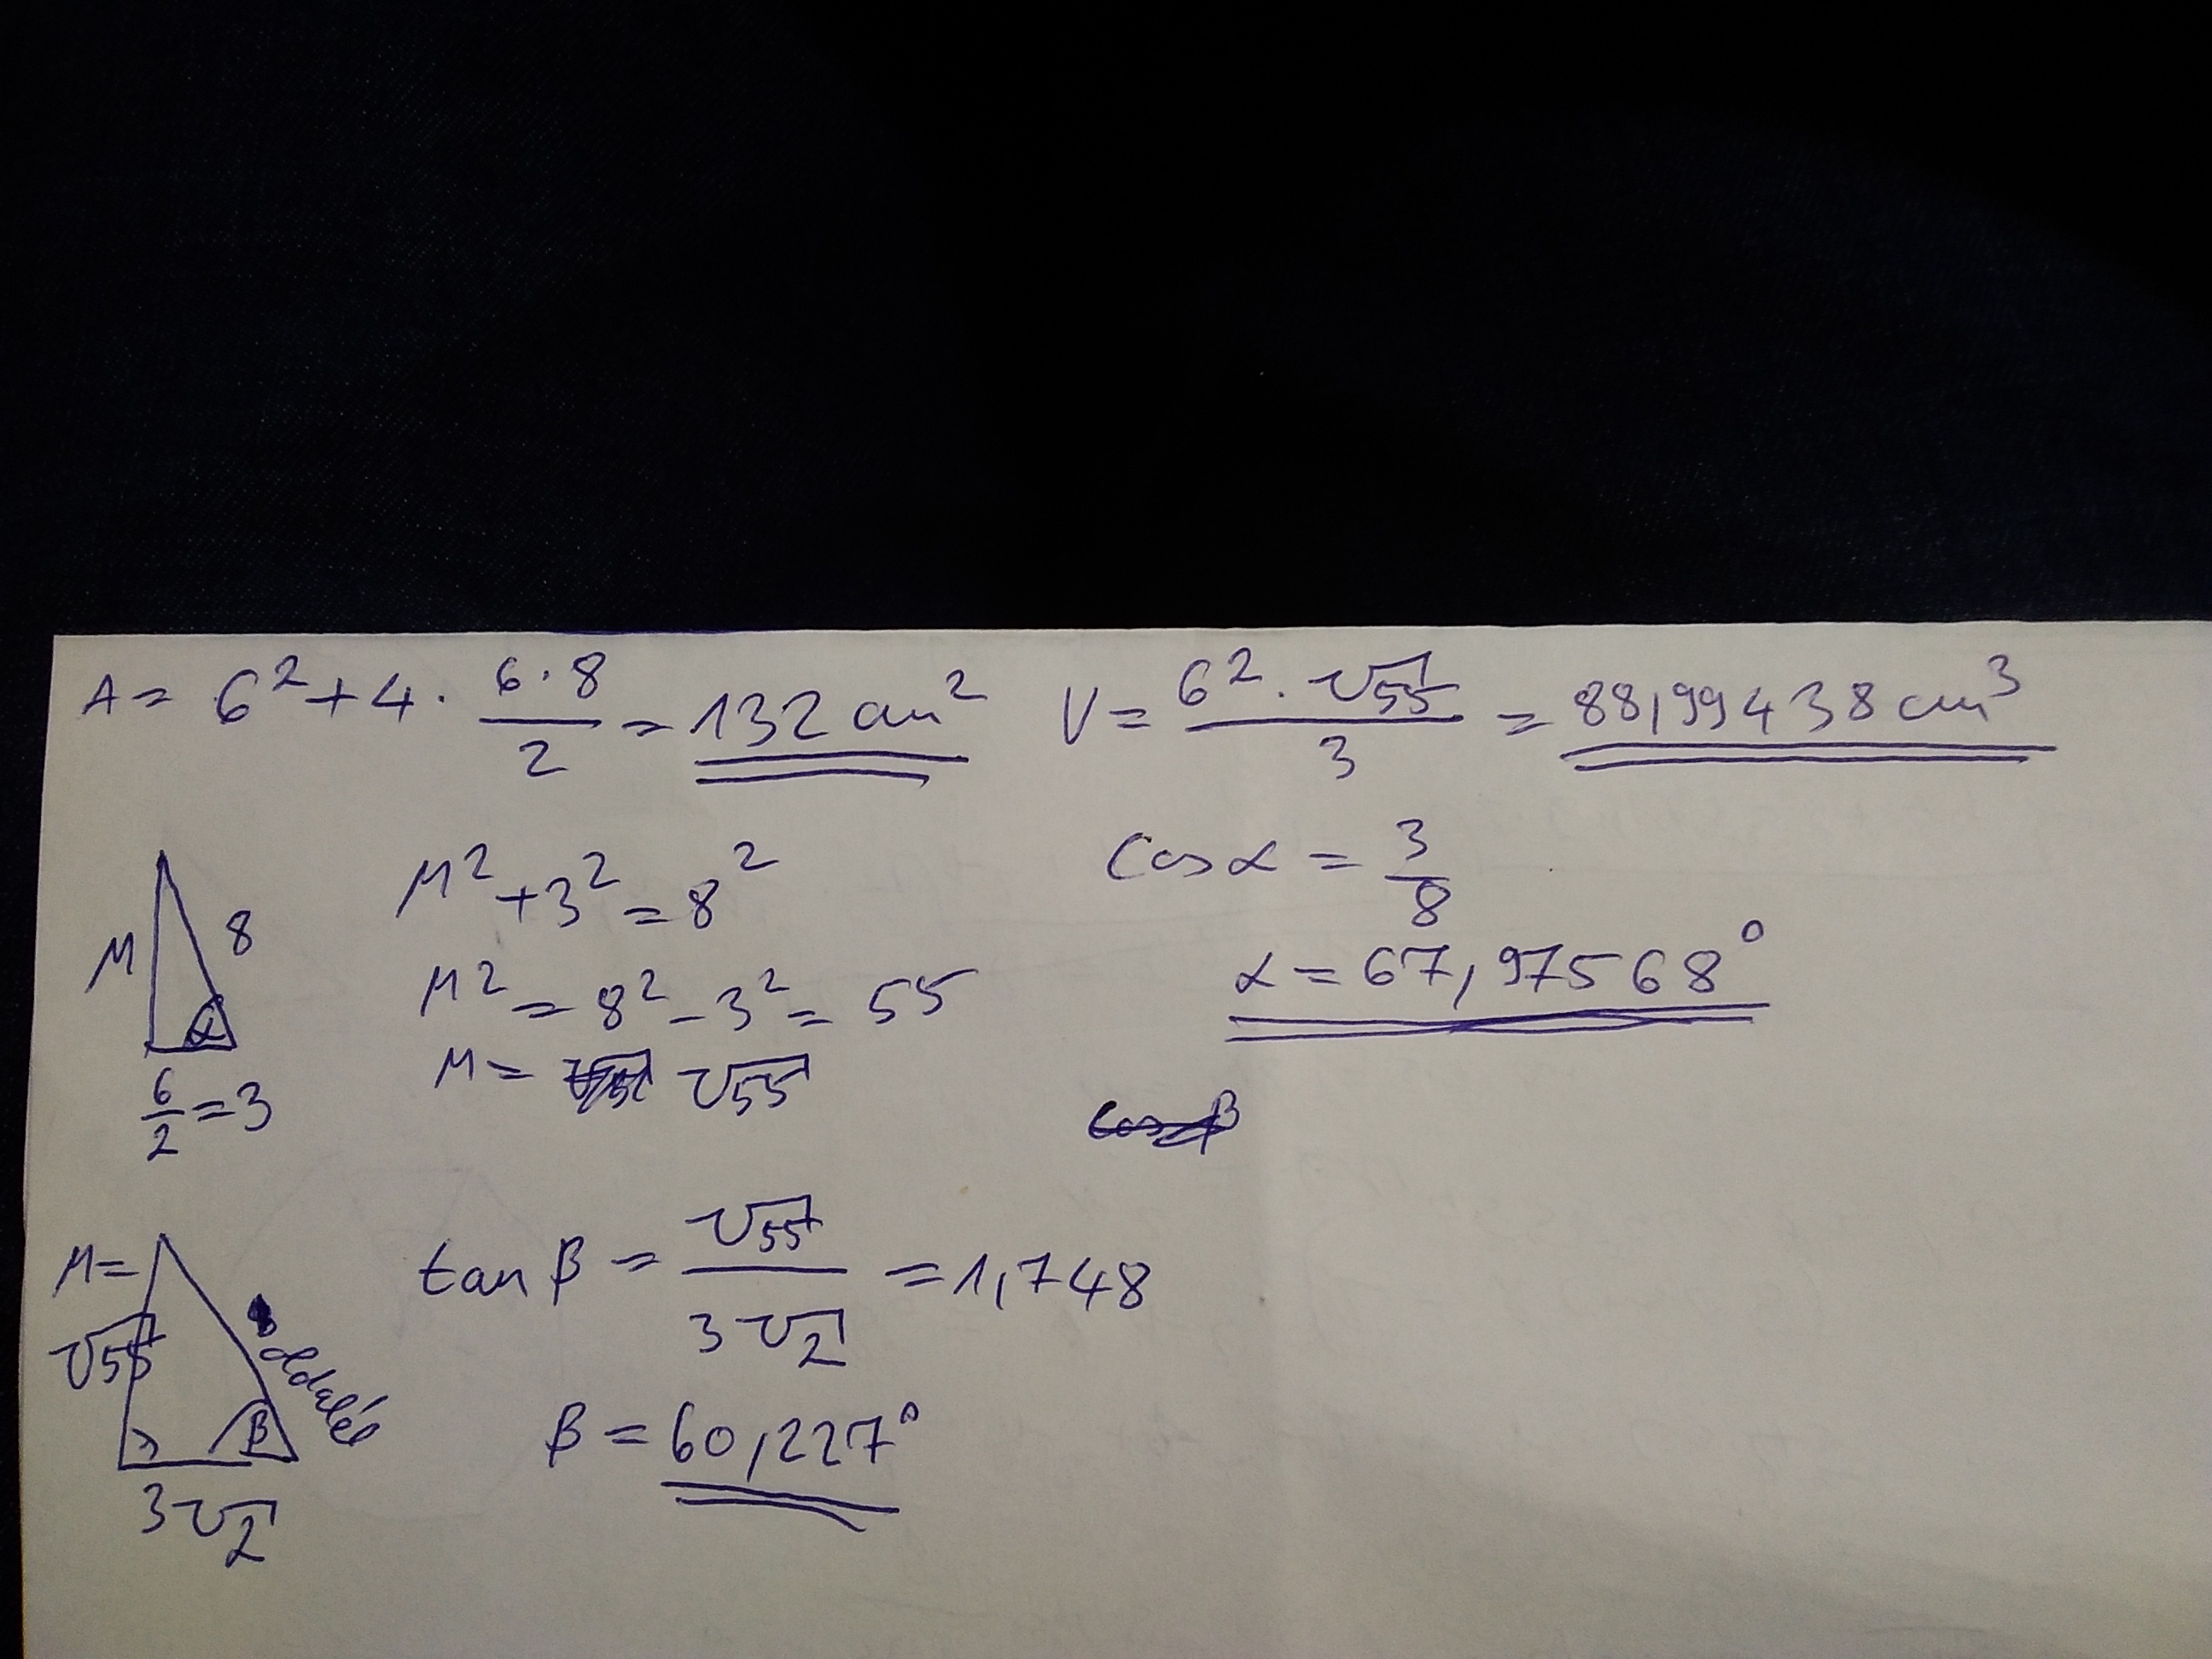 A = 6² + 4 · (6 · 8)/2 = 132 cm²
V = (6² · √55)/3 = 88,99438 cm³
M
8
α
6/2 = 3
M² + 3² = 8²
M² = 8² - 3² = 55
M = √55
cos α = 3/8
α = 67,97568°
cos β
M =
√55
oldalél
β
3√2
tan β = √55/(3√2) = 1,748
β = 60,227°